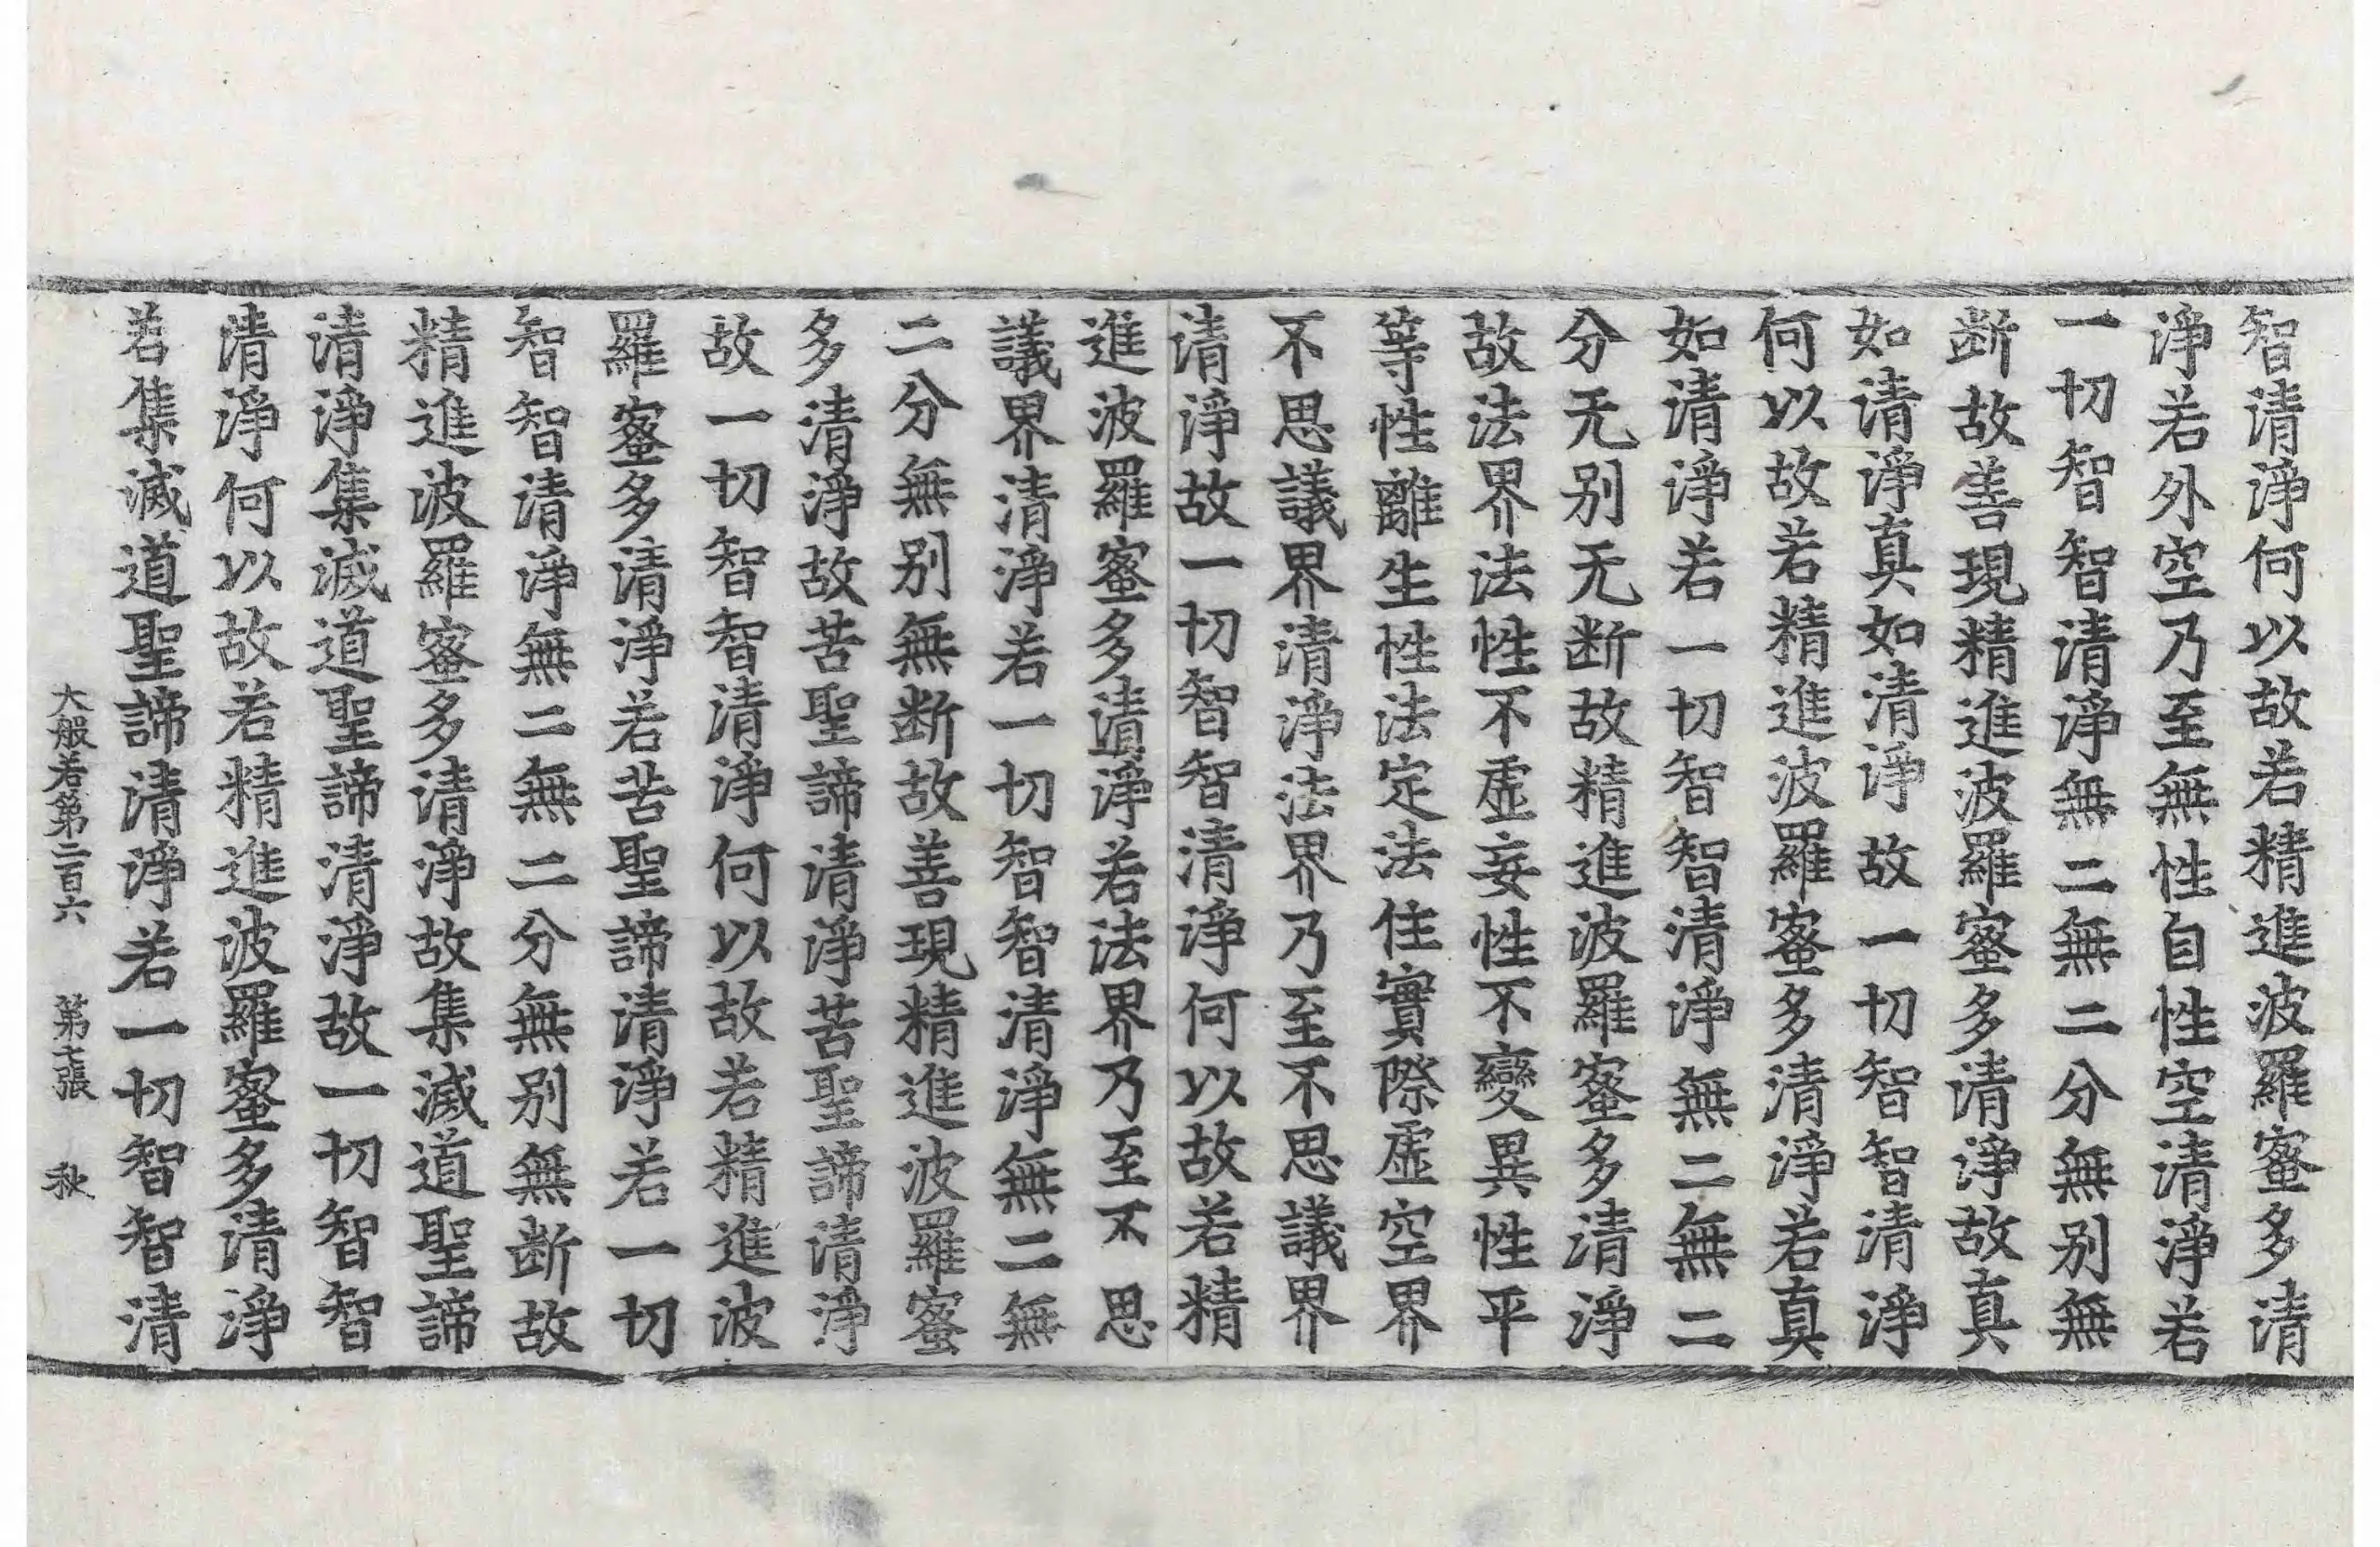 智清淨何以故若精進波羅蜜多清
淨若外空乃至無性自性空清淨若
一切智智清淨無二無二分無别無
断故善現精進波羅蜜多清淨故真
如清淨真如清淨故一切智智清淨
何以故若精進波羅蜜多清淨若真
如清淨若一切智智清淨無二無二
分无别无断故精進波羅蜜多清淨
故法界法性不虛妄性不變異性平
等性離生性法定法住實際虛空界
不思議界清淨法界乃至不思議界
清淨故一切智智清淨何以故若精
進波羅蜜多清淨若法界乃至不思
議界清淨若一切智智清淨無二無
二分無别無断故善現精進波羅蜜
多清淨故苦聖諦清淨苦聖諦清淨
故一切智智清淨何以故若精進波
羅蜜多清淨若苦聖諦清淨若一切
智智清淨無二無二分無别無断故
精進波羅蜜多清淨故集滅道聖諦
清淨集滅道聖諦清淨故一切智智
清淨何以故若精進波羅蜜多清淨
若集滅道聖諦清淨若一切智智清
大般若第二百六 第七張 秋